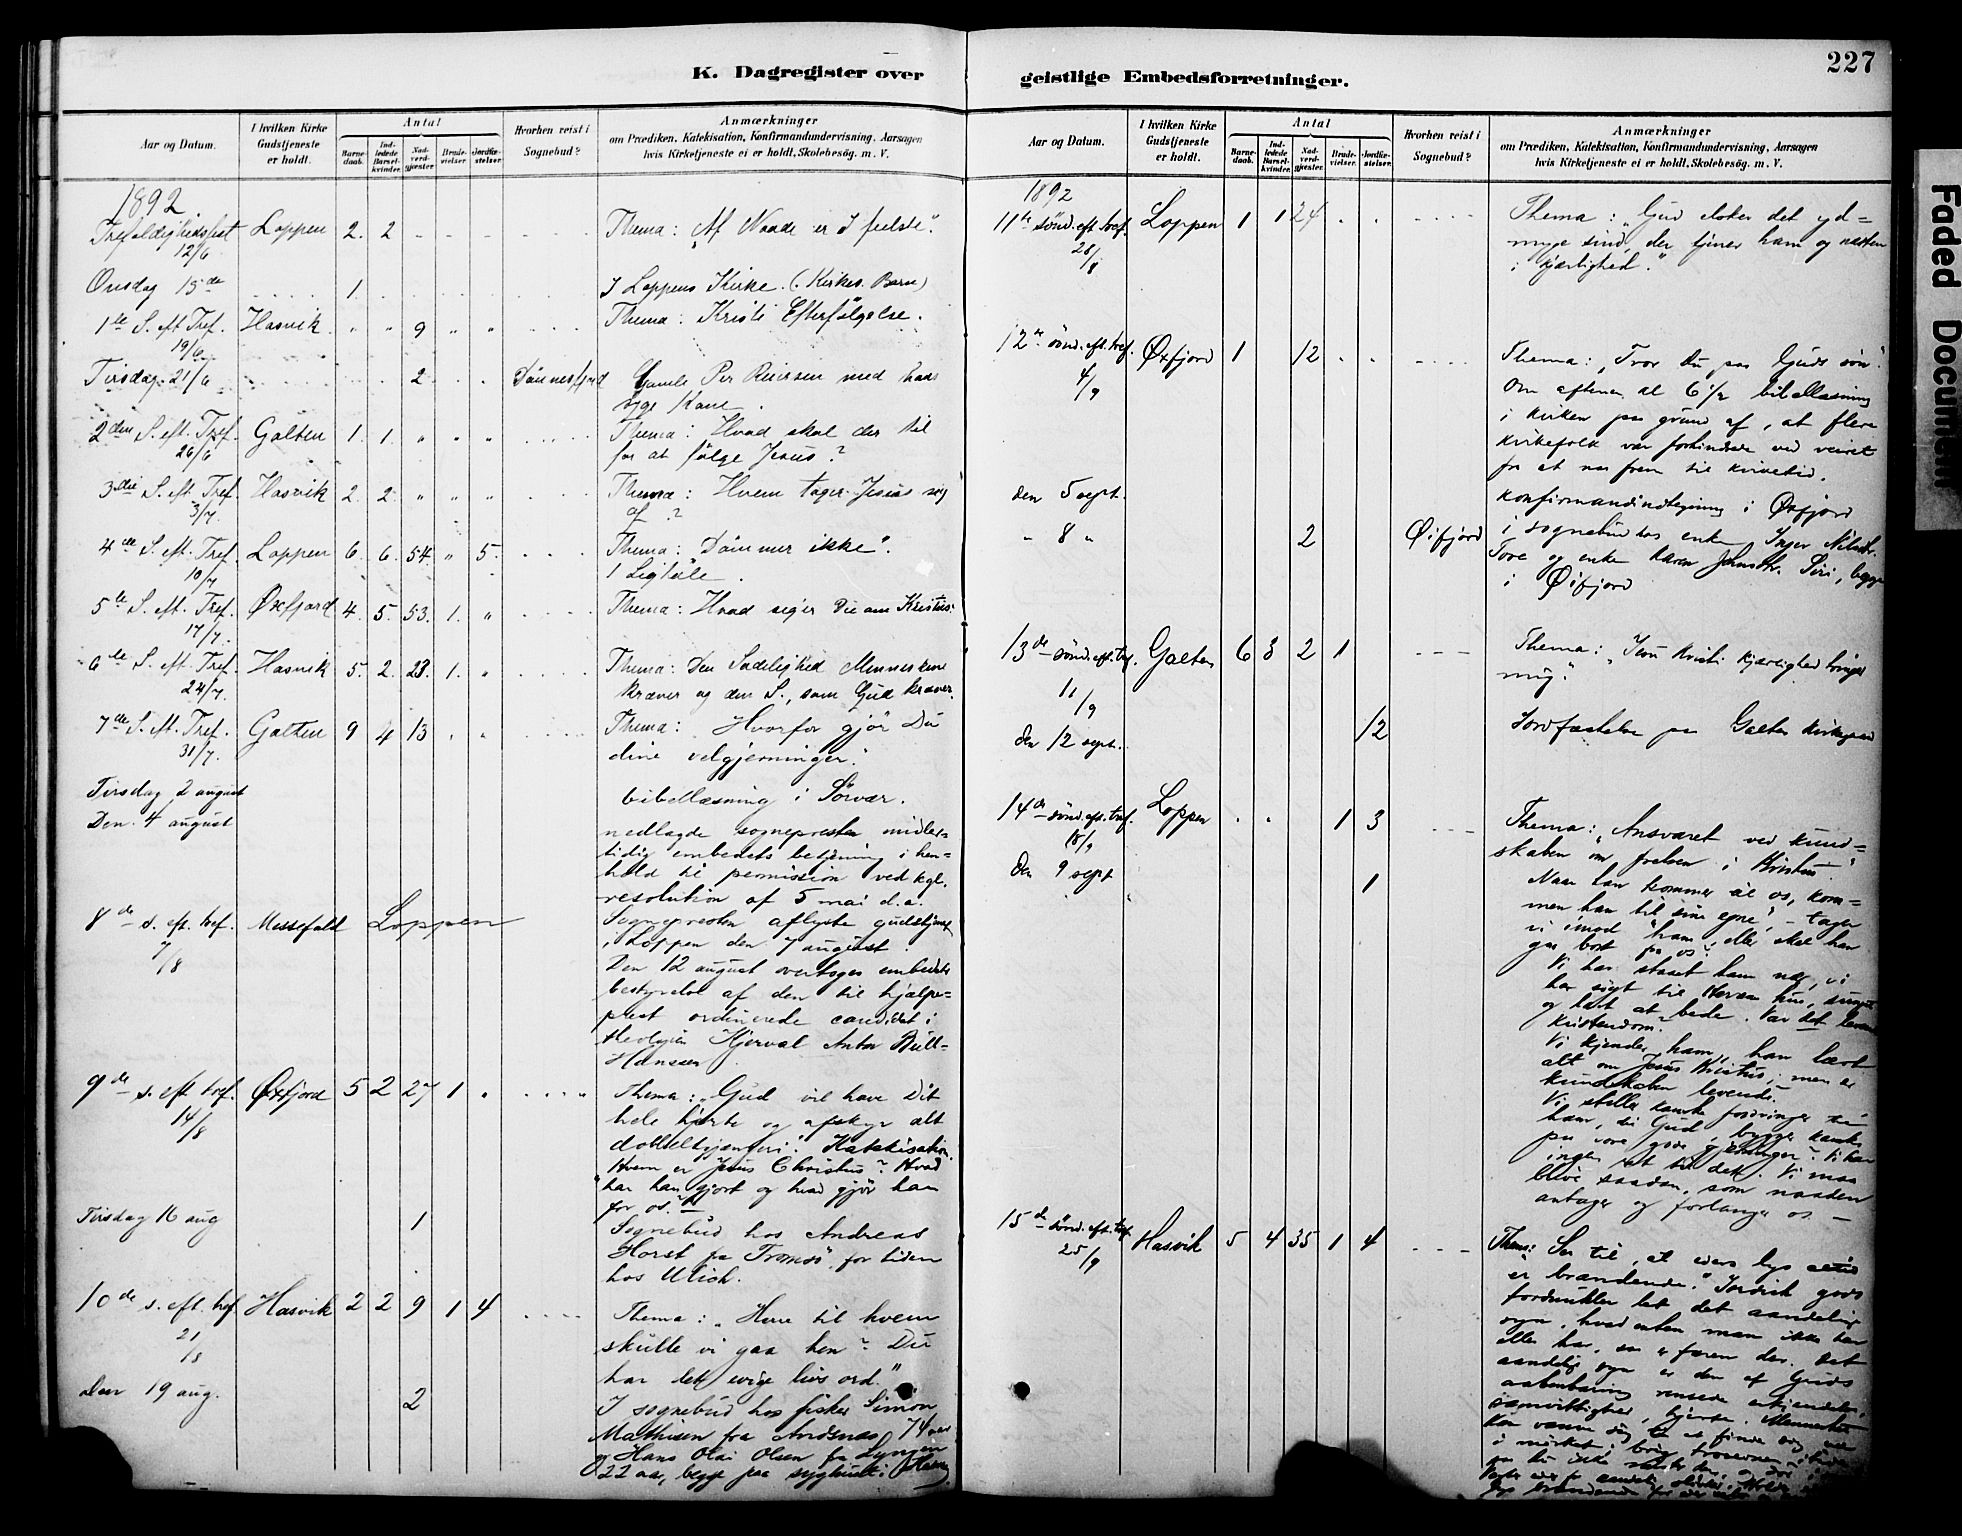 K. Dagregister over
Aar og Datum.
I hvilken Kirke Gudstjeneste er holdt.
Antal
Barne-daab.
Ind-ledede Barsel-kvinder.
Nad-verd-gjester.
Brude-vielser.
Jordfæ-stelser.
Hvorhen reist i Sognebud?
Anmærkninger
om Prædiken, Katekisation, Konfirmandundervisning, Aarsagen
hvis Kirketjeneste ei er holdt, Skolebesøg. m. V.
1892
Trefoldighedsfest 12/6 Loppen 2. 2 Thema: "Af Naade er I frelste".
Onsdag 15de 1. I Loppens Kirke. (Kirkes. Barn)
1te S. eft Tref. 19/6 Hasvik " " 9 " " Thema: Kristi Efterfølgelse.
Tirsdag 21/6 2 Gamle Per med hans
syge Kone.
2den S. eft. Tref. 26/6 Galten 1. 1. " " " Thema: Hvad skal der til
for at følge Jesus?
3die S. eft. Tref. 3/7. Hasvik 2. 2 " " " Thema: Hvem tager Jesus sig
af?
4de S. eft. Tref. 10/7 Loppen 6. 6. 54 " 5. Thema: "Dømmer ikke".
1 Ligtale.
5te S. eft. Tref. 17/7. Øxfjord 4. 5. 53. 1. " Thema: Hvad siger Die om Kristus.
6te S. eft. Tref. 24/7. Hasvik 5. 2. 23. 1. " Thema: Den Sædelighed Menneskene
kræver og den S., som Gud kræver.
7de S. eft. Tref. 31/7. Galten 9 4 13 Thema: Hvorfor gjør Du
dine velgjerninger.
Tirsdag 2 august bibellæsning i Sørvær.
Den 4 august nedlagde sognepresten midler-
tidig embedets betjening i hen-
hold til permission ved kgl.
resolution af 5 mai d.a.
8de s. eft. tref. 7/8 Messefald Loppen Sognepresten aflyste gudstjenst
i Loppen den 7 august.
Den 12 august overtoges embedets
bestyrelse af den til hjælpe-
prest ordinerede candidat i
theologien Antor Bull-
Hansen.
9de s. eft tref. 14/8 Øxfjord 5 2 27 1 " Thema: "Gud vil have Dit
hele hjerte og afskyr alt
Katekisation.
"Hvem er Jesus Christus? Hvad
har han gjort og hvad gjør han
for os."
Tirsdag 16 aug 1 Sognebud hos Andreas
Horst fra Tromsø for tiden
hos Ulich.
10de s. eft. tref 21/8 Hasvik 2 2 9 1 4 Thema: "Herre til hvem
skulle vi gaa hen? Du
har det evige livs ord."
Den 19 aug. 2 I sognebud hos fisker Simon
Mathisen fra Andsnæs 74 aar
og Hans Olai Olsen fra Lyngen
22 aar, begge paa
geistlige Embedsforretninger.
227
Aar og Datum.
I hvilken Kirke Gudstjeneste er holdt.
Antal
Barne-daab.
Ind-ledede Barsel-kvinder.
Nad-verd-gjester.
Brude-vielser.
Jordfæ-stelser.
Hvorhen reist i Sognebud?
Anmærkninger
om Prædiken, Katekisation, Konfirmandundervisning, Aarsagen
hvis Kirketjeneste ei er holdt, Skolebesøg. m. V.
1892
11te sønd. eft. tref. 28/8 Loppen 1 1 24 Thema: "Gud elsker det yd-
myge sind, der tjener ham og næsten
i kjærlighed."
12te sønd. eft. tref. 4/9 Øxfjord 1 12 Thema: "Tror Du paa Guds søn".
Om aftenen kl 6 1/2 bibellæsning
i kirken paa grund af, at flere
kirkefolk var forhindrede ved veiret
fra at naa frem til kirketid.
den 5 sept. konfirmandindtegning i Øxfjord
" 8 " 2 Øifjord i sognebud hos enke Inger
Tore og enke Karen Siri, begge
i Øifjord
13de sønd. eft. tref. 11/9 Galten 6 3 2 1 Thema: "Jesu Kristi kjærlighed tvinger
mig."
den 12 sept. 12 Jordfæstelse paa Galten kirkegaard
14de sønd. eft. tref. 18/9 Loppen 1 3 Thema: "Ansvaret ved kund-
skaben om frelsen i Kristus".
Den 9 sept 1 Naar han kommer til os, kom-
men han til sine egne, - tager
vi imod ham, eller skal han
gaa bort fra os?
Vi har staaet ham nær, vi
har sagt til Herren
og lært at bede. Var det
kristendom?
Vi kjender ham, har lært
alt om Jesus Kristus, men er
kundskaben levende.
Vi stiller kanske fordringer til
ham, til Gud, bygger kanske
paa vore gode gjerninger. Vi har
ingen ret til det. Vi maa
blive saadan, som naaden
antager og forlanger os -
15de sønd. eft. tref. 25/9 Hasvik 5 4 35 1 4 Thema: "Se til, at eders lys altid
er brændende." Jordisk gods
fordunkler let det aandelige
øie, hvad enten man ikke har
eller har, er faren der. Det
aandelige øie er den af Guds
aabenbaring rensede erkjendelse,
samvittighed, hjerte. Mennesket
kan vænne sig til at finde sig
i mørket
Faded Document